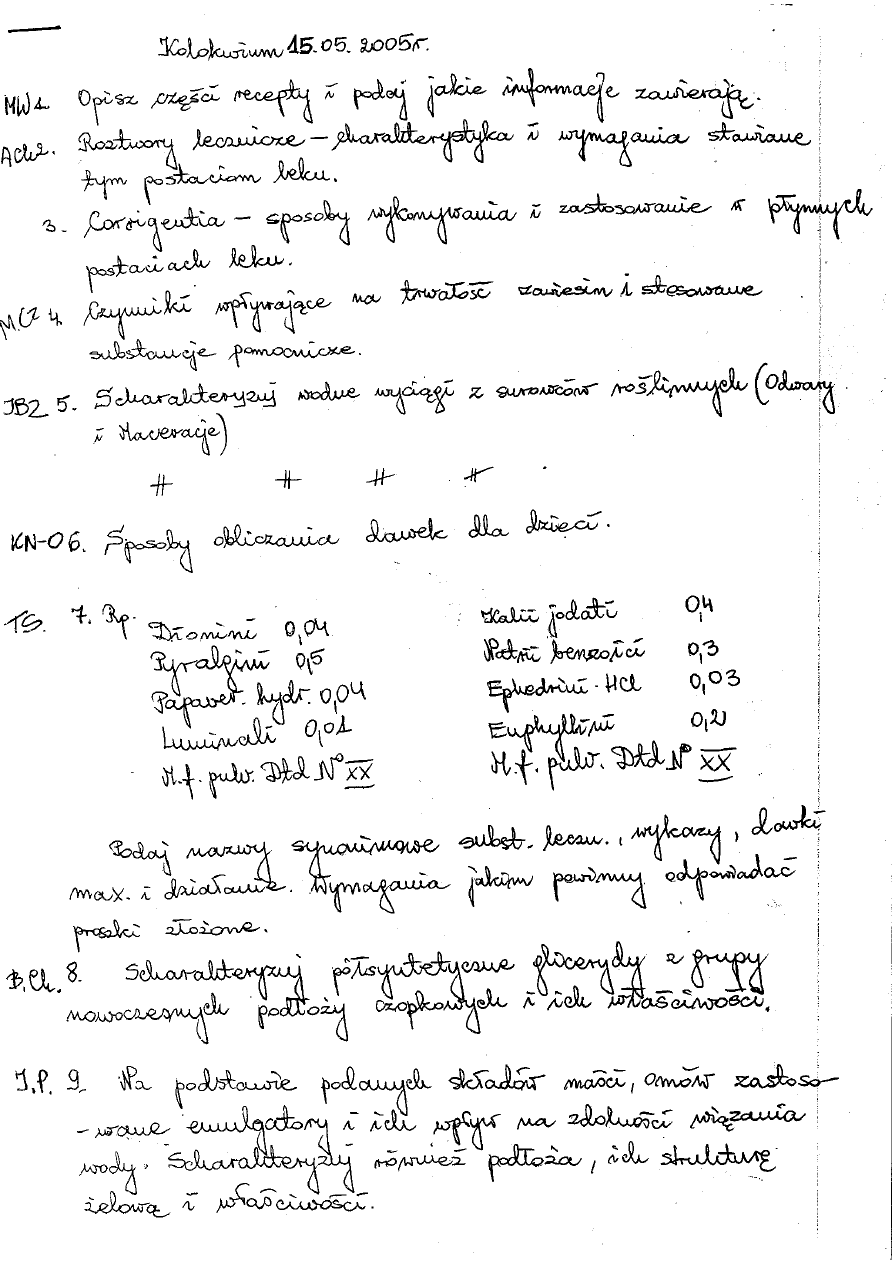 Kolokwium 15.05. 2005r.
MW 1. Opisz części recepty i podaj jakie informacje zawierają.
ACh2. Roztwory lecznicze – charakterystyka i wymagania stawiane
tym postaciom leku.
3. Corrigentia – sposoby wykonywania i zastosowanie w płynnych
postaciach leku.
M.CZ 4. Czynniki wpływające na trwałość zawiesin i stosowane
substancje pomocnicze.
JBZ 5. Scharakteryzuj wodne wyciągi z surowców roślinnych (Odwary
i Maceracje)
# # # #
KN-O 6. Sposoby obliczania dawek dla dzieci.
TS. 7. Rp.
Dionini 0,04
Pyralgini 0,5
Papaver. hydr. 0,04
Luminali 0,01
M.f. pulv. Dtd N° XX
Kalii jodati 0,4
Natrii benzoici 0,3
Ephedrini·HCl 0,03
Euphyllini 0,2
M.f. pulv. Dtd N° XX
Podaj nazwy synonimowe subst. leczn., wykazy, dawki
max. i działanie. Wymagania jakim powinny odpowiadać
proszki złożone.
B.Ch. 8. Scharakteryzuj półsyntetyczne glicerydy z grupy
nowoczesnych podłoży czopkowych i ich właściwości.
J.P. 9. Na podstawie podanych składów maści, omów zastoso-
-wane emulgatory i ich wpływ na zdolności wiązania
wody. Scharakteryzuj również podłoża, ich strukturę
żelową i właściwości.